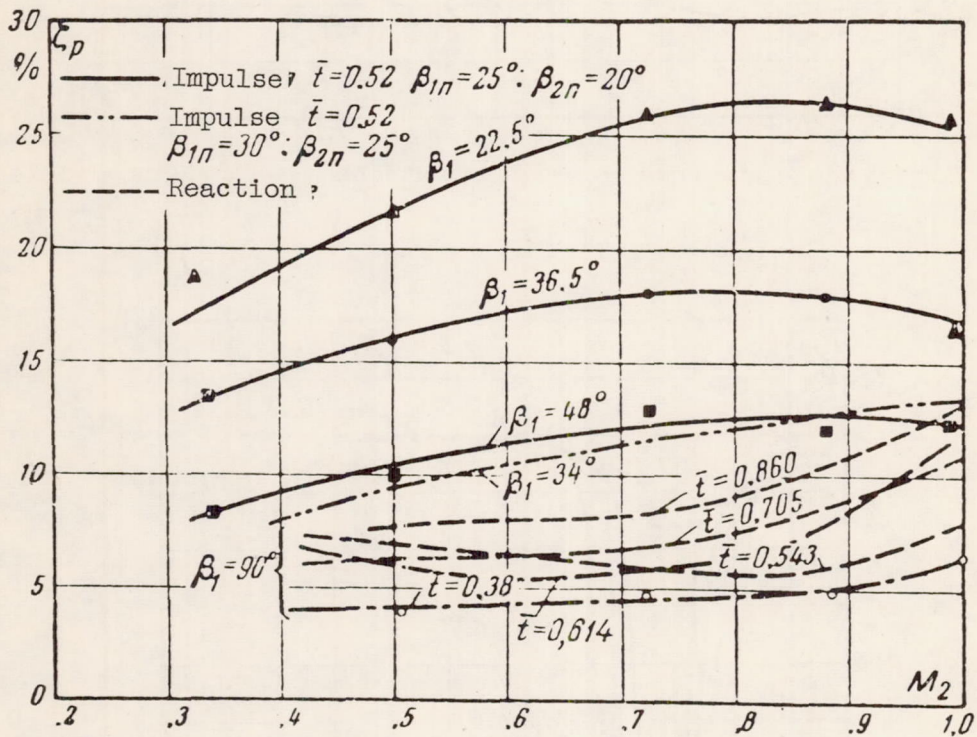 30
ζp
%
Impulse, t̄=0.52 β1п=25°: β2п=20°
Impulse t̄=0.52
β1п=30°: β2п=25°
Reaction
25
20
15
10
5
0
β1=22.5°
β1=36.5°
β1=48°
β1=34°
t̄=0.860
t̄=0.705
t̄=0,543
β1=90°
t̄=0.38
t̄=0,614
M2
.2 .3 .4 .5 .6 .7 .8 .9 1,0